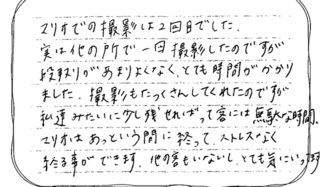 マリオでの撮影は2回目でした。
実は他の所で一回撮影したのですが
段取りがあまりよくなく、とても時間がかかり
ました。撮影もたっくさんしてくれたのですが
私達みたいに少し残せればって客には無駄な時間。
マリオはあっという間に終って、ストレスなく
終る事ができます。他の客もいないし、とても気にいってます